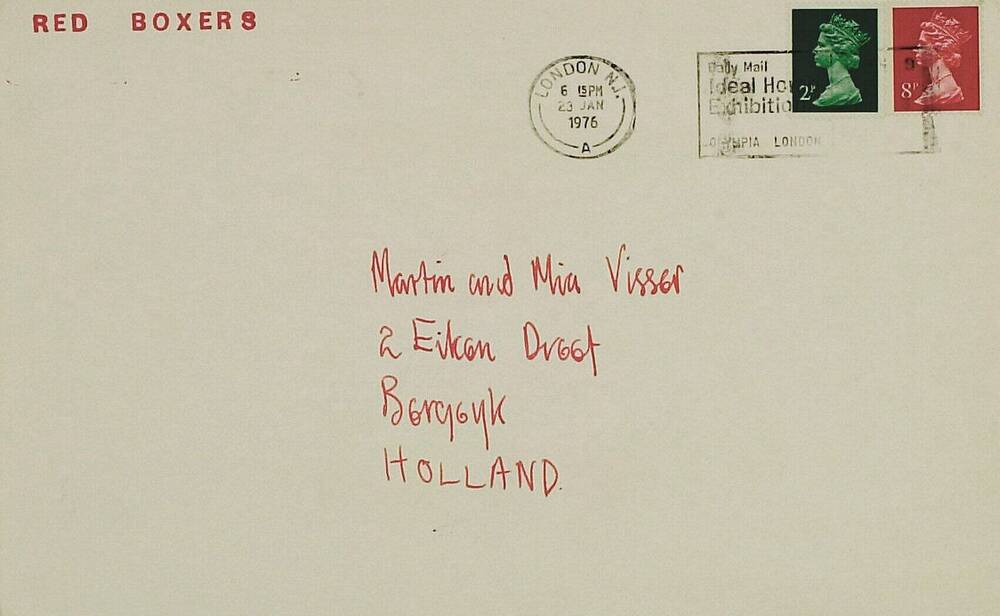 RED BOXERS
LONDON N.1.
6 15PM
23 JAN
1976
A
Daily Mail
Ideal
Exhibitio
OLYMPIA LONDON
2P
8P
Martin and Mia Visser
2 Eiken Dreef
Bergeyk
HOLLAND.